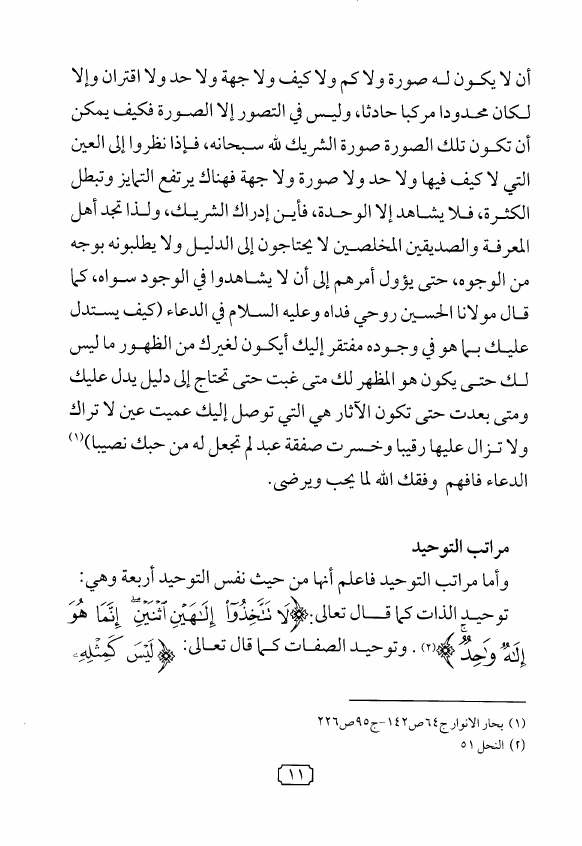 أن لا يكون له صورة ولا كم ولا كيف ولا جهة ولا حد ولا اقتران وإلا
لكان محدودا مركبا حادثا، وليس في التصور إلا الصورة فكيف يمكن
أن تكون تلك الصورة صورة الشريك لله سبحانه، فإذا نظروا إلى العين
التي لا كيف فيها ولا حد ولا صورة ولا جهة فهناك يرتفع التمايز وتبطل
الكثرة، فلا يشاهد إلا الوحدة، فأين إدراك الشريك، ولذا تجد أهل
المعرفة والصديقين المخلصين لا يحتاجون إلى الدليل ولا يطلبونه بوجه
من الوجوه، حتى يؤول أمرهم إلى أن لا يشاهدوا في الوجود سواه، كما
قال مولانا الحسين روحي فداه وعليه السلام في الدعاء (كيف يستدل
عليك بما هو في وجوده مفتقر إليك أيكون لغيرك من الظهور ما ليس
لك حتى يكون هو المظهر لك متى غبت حتى تحتاج إلى دليل يدل عليك
ومتى بعدت حتى تكون الآثار هي التي توصل إليك عميت عين لا تراك
ولا تزال عليها رقيبا وخسرت صفقة عبد لم تجعل له من حبك نصيبا)(١)
الدعاء فافهم وفقك الله لما يحب ويرضى.
مراتب التوحيد
وأما مراتب التوحيد فاعلم أنها من حيث نفس التوحيد أربعة وهي:
توحيد الذات كما قال تعالى: ﴿لَا تَتَّخِذُوٓا۟ إِلَـٰهَيْنِ ٱثْنَيْنِ ۖ إِنَّمَا هُوَ
إِلَـٰهٌ وَٰحِدٌ ۚ﴾(٢). وتوحيد الصفات كما قال تعالى: ﴿لَيْسَ كَمِثْلِهِۦ
(١) بحار الانوار ج٦٤ص١٤٢-ج٩٥ص٢٢٦
(٢) النحل ٥١
١١